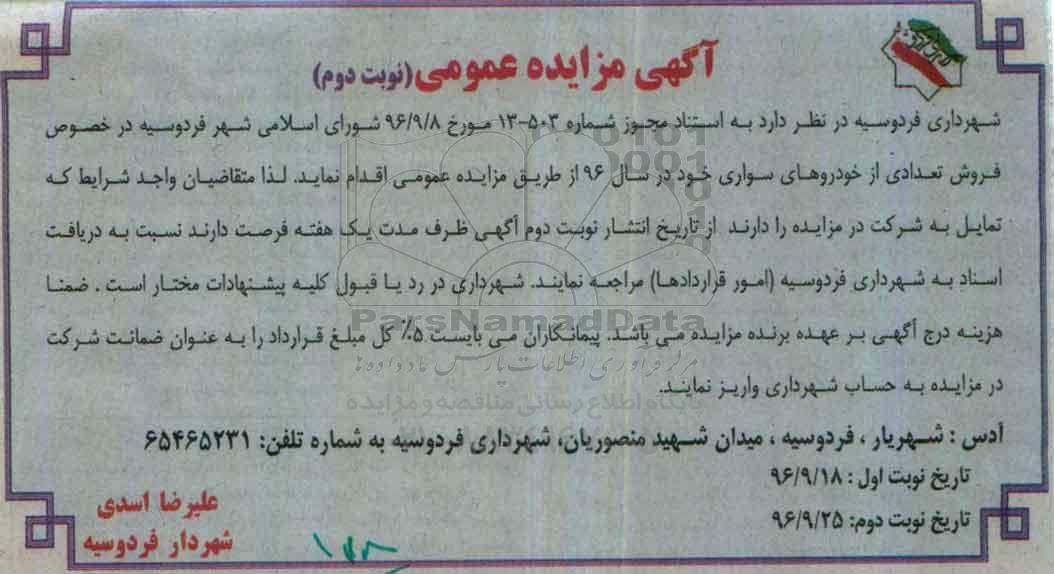 آگهی مزایده عمومی (نوبت دوم)
شهرداری فردوسیه در نظر دارد به استناد مجوز شماره ۵۰۳-۱۳ مورخ ۹۶/۹/۸ شورای اسلامی شهر فردوسیه در خصوص
فروش تعدادی از خودروهای سواری خود در سال ۹۶ از طریق مزایده عمومی اقدام نماید. لذا متقاضیان واجد شرایط که
تمایل به شرکت در مزایده را دارند از تاریخ انتشار نوبت دوم آگهی ظرف مدت یک هفته فرصت دارند نسبت به دریافت
اسناد به شهرداری فردوسیه (امور قراردادها) مراجعه نمایند. شهرداری در رد یا قبول کلیه پیشنهادات مختار است . ضمنا
هزینه درج آگهی بر عهده برنده مزایده می باشد. پیمانکاران می بایست ۵٪ کل مبلغ قرارداد را به عنوان ضمانت شرکت
در مزایده به حساب شهرداری واریز نمایند.
آدس : شهریار ، فردوسیه ، میدان شهید منصوریان، شهرداری فردوسیه به شماره تلفن: ۶۵۴۶۵۲۳۱
تاریخ نوبت اول : ۹۶/۹/۱۸
تاریخ نوبت دوم: ۹۶/۹/۲۵
علیرضا اسدی
شهردار فردوسیه
ParsNamadData
پایگاه اطلاع رسانی مناقصه و مزایده